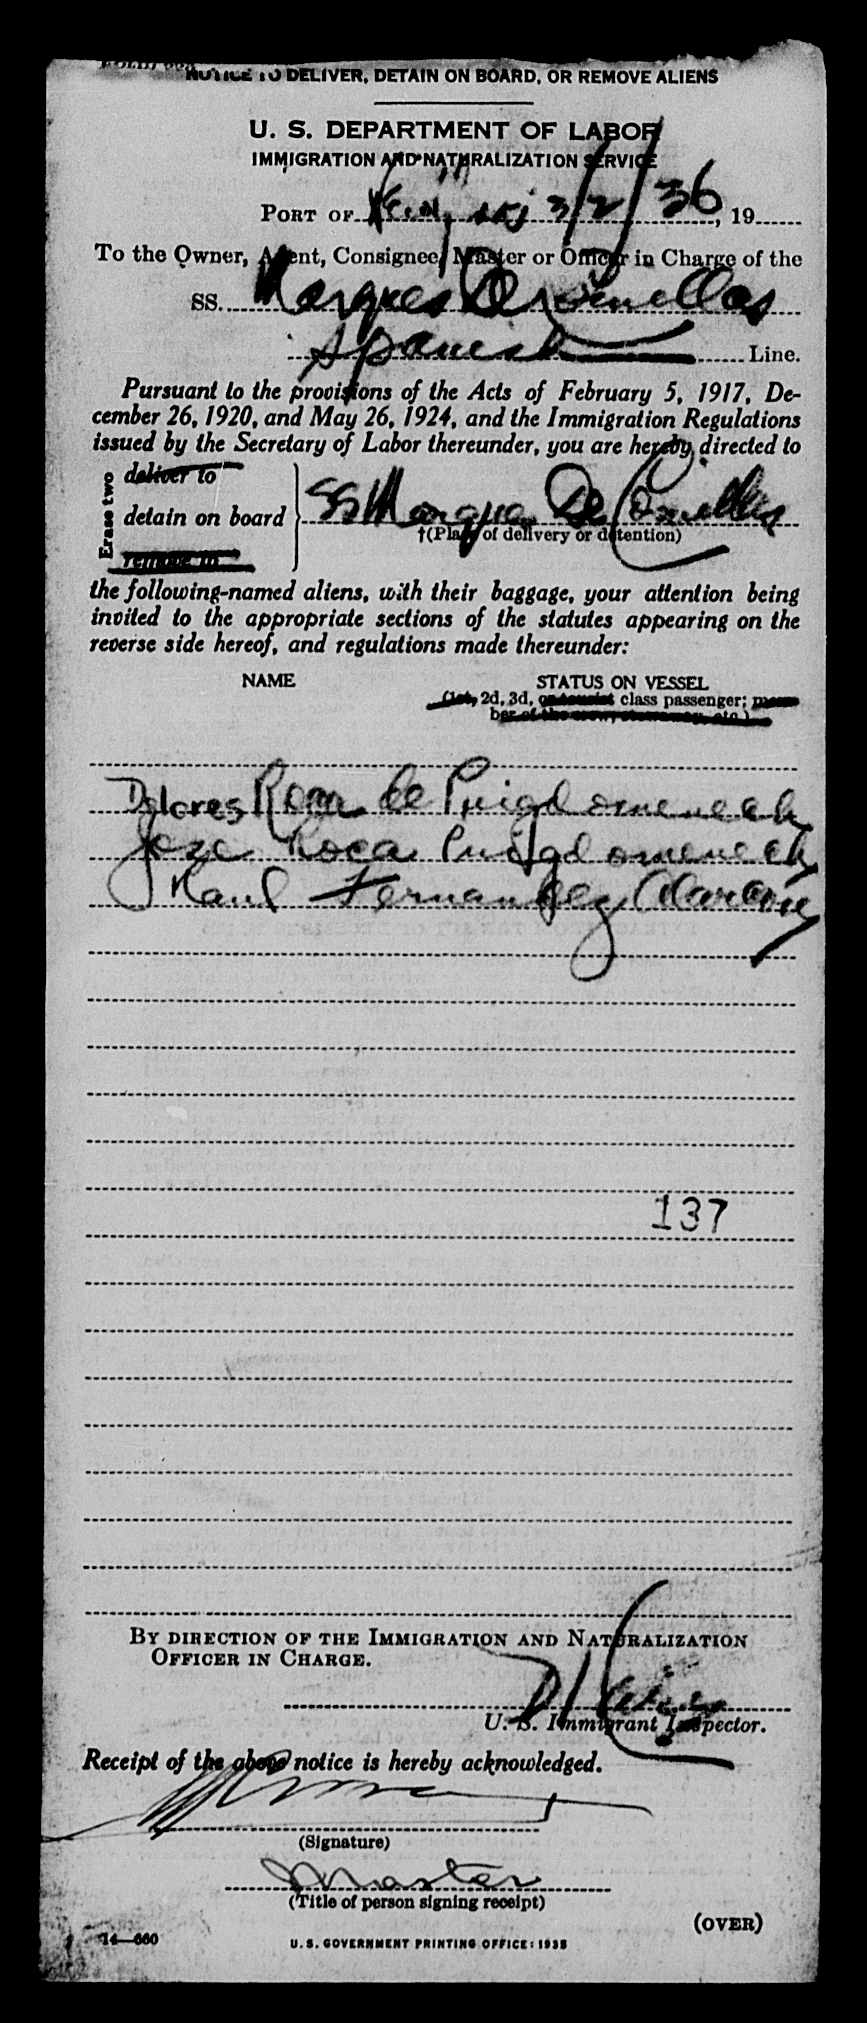 NOTICE TO DELIVER, DETAIN ON BOARD, OR REMOVE ALIENS
U. S. DEPARTMENT OF LABOR
IMMIGRATION AND NATURALIZATION SERVICE
PORT OF 3/2/36, 19
To the Owner, Agent, Consignee, Master or Officer in Charge of the
SS. Marques De Comillas
Spanish Line.
Pursuant to the provisions of the Acts of February 5, 1917, De-
cember 26, 1920, and May 26, 1924, and the Immigration Regulations
issued by the Secretary of Labor thereunder, you are hereby directed to
Erase two
deliver to
detain on board
remove to
SS Marques De Comillas
†(Place of delivery or detention)
the following-named aliens, with their baggage, your attention being
invited to the appropriate sections of the statutes appearing on the
reverse side hereof, and regulations made thereunder:
NAME
STATUS ON VESSEL
(1st, 2d, 3d, or tourist class passenger; mem-
ber of the crew, stowaway, etc.)
Dolores Roca de Puigdomenech
Jose Roca Puigdomenech
Raul Fernandez
137
BY DIRECTION OF THE IMMIGRATION AND NATURALIZATION
OFFICER IN CHARGE.
U. S. Immigrant Inspector.
Receipt of the above notice is hereby acknowledged.
(Signature)
Master
(Title of person signing receipt)
(OVER)
14—660
U. S. GOVERNMENT PRINTING OFFICE: 1935